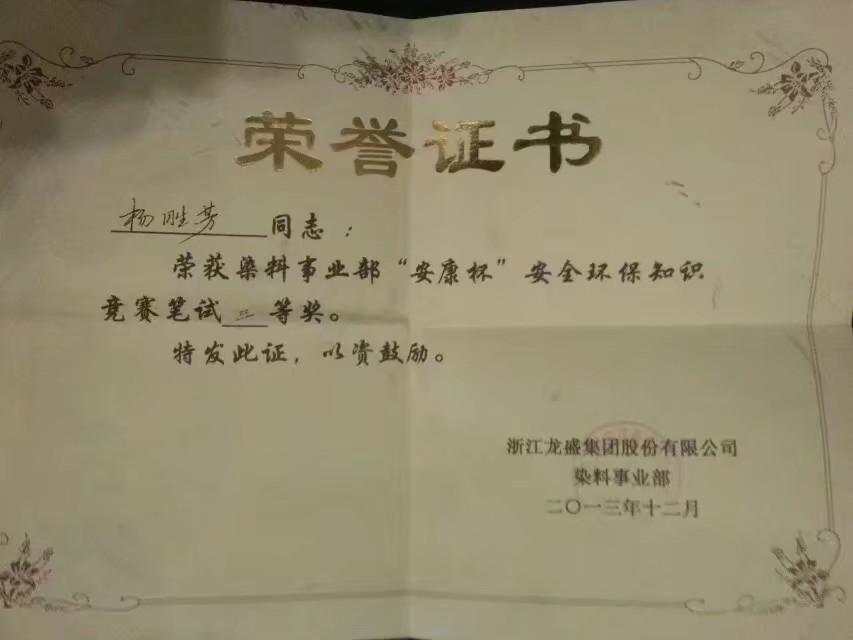 荣誉证书
杨胜芳 同志：
荣获染料事业部“安康杯”安全环保知识
竞赛笔试三等奖。
特发此证，以资鼓励。
浙江龙盛集团股份有限公司
染料事业部
二〇一三年十二月